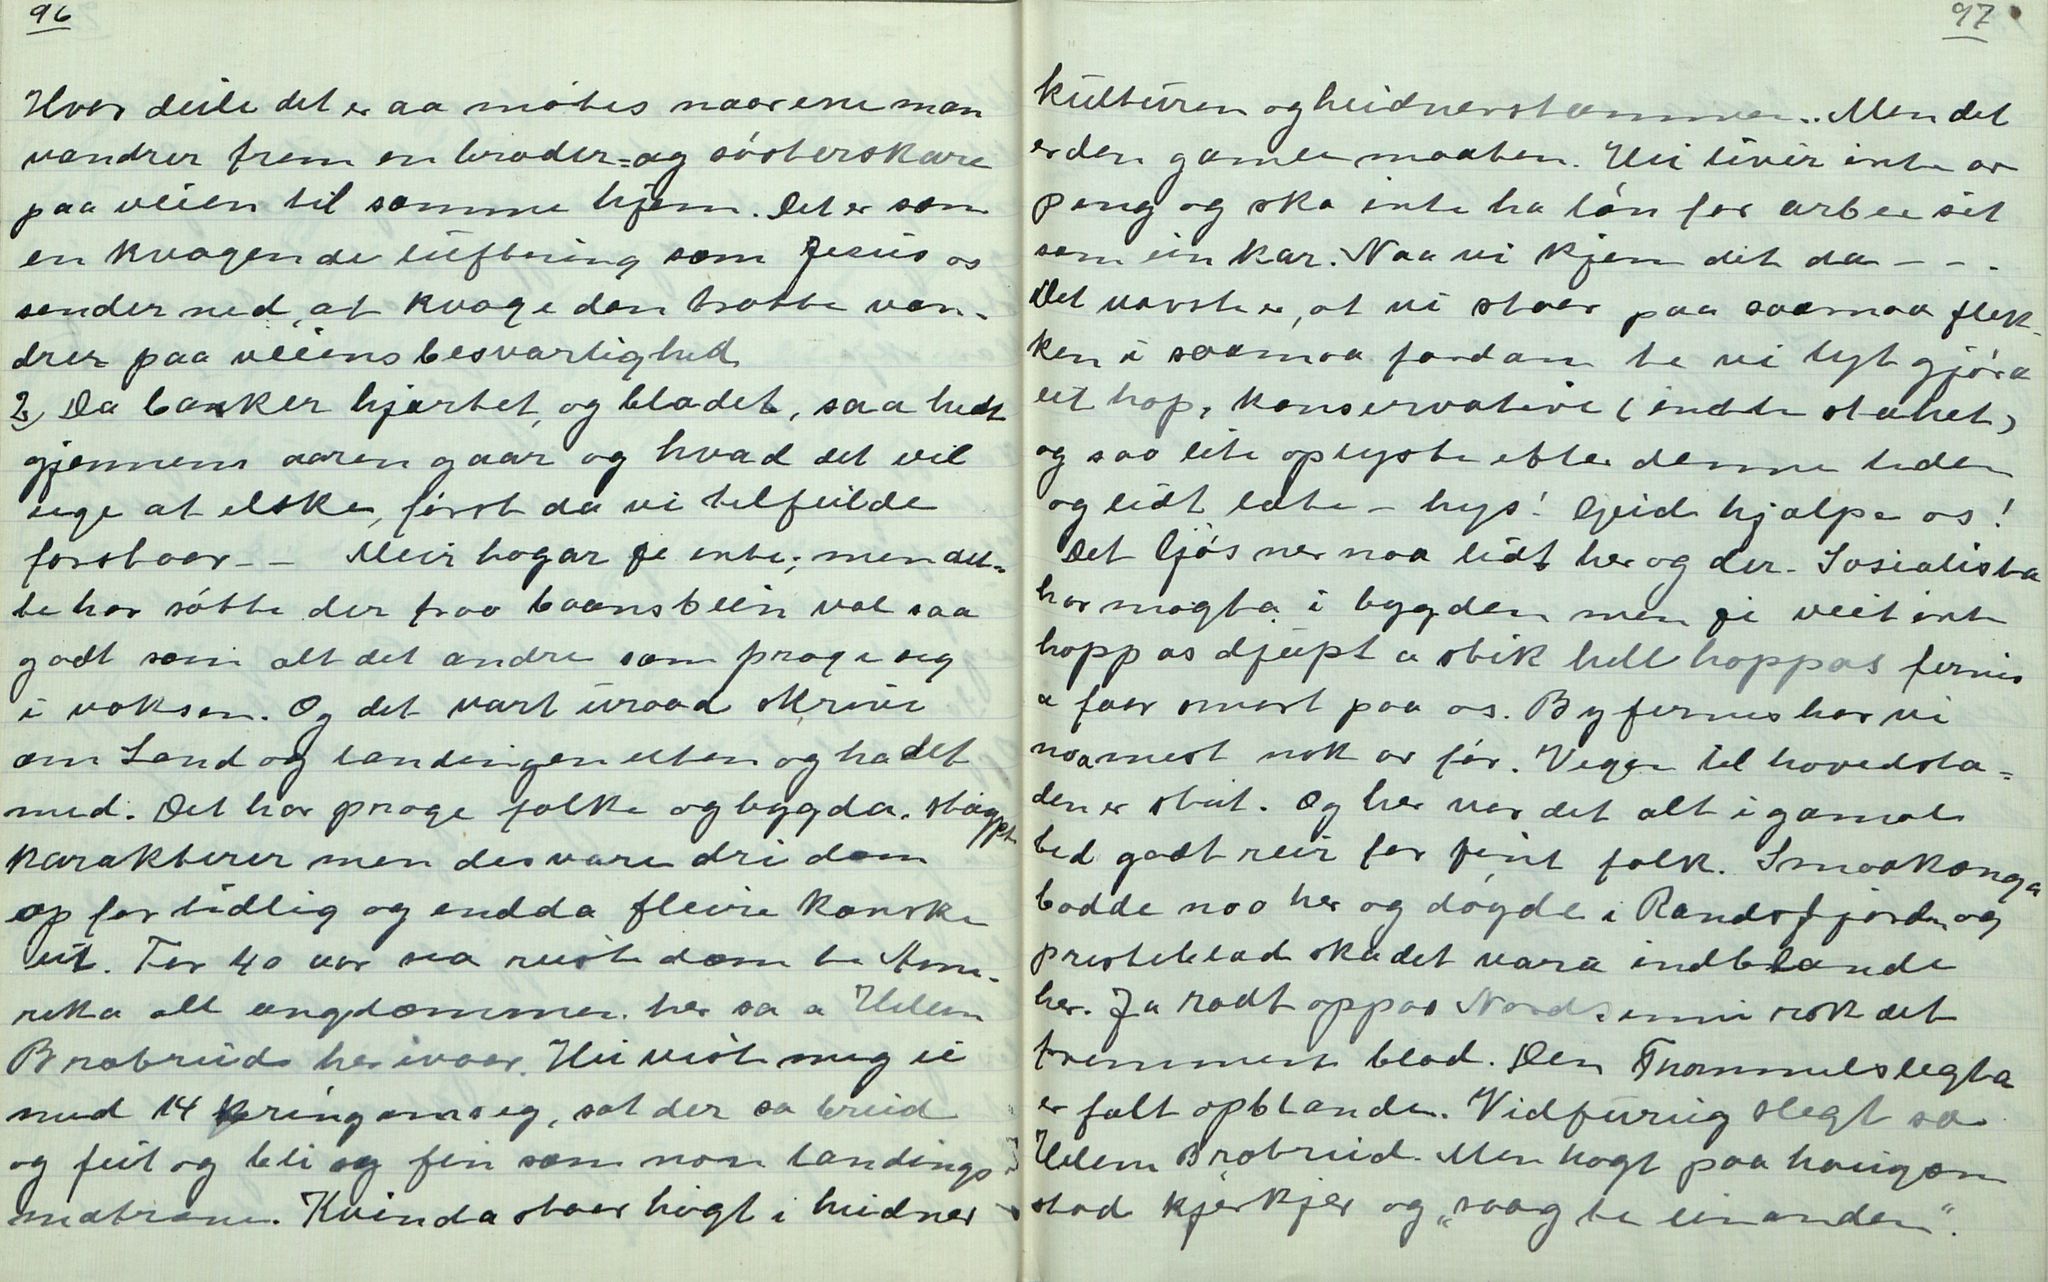 96
Hvor deile det er aa møtes naar ene man
vandrer frem en broder= og søsterskare
paa veien til samme hjem. Det er som
en kvægende luftning som Jesus os
sender ned, at kvæge den trætte van-
drer paa veiens besværlighed
2) Da banker hjærtet, og blodet, saa hedt
gjennem aaren gaar og hvad det vil
sige at elske, først da vi tilfulde
forstaar – – Meir hogar je inte; men det=
te har søtte der fraa baansbein vel saa
godt som alt det andre som præge seg
i voksen. Og det vart uraad skrive
om Land og landingen uten og ha det
med. Det har præge folke og bygda. støypt
karakterer men desværre dri dem
op for tidlig og endda fleire kanske
ut. For 40 aar sea reiste dem te Ame-
rika alt ungdommen her sa a Helene
Brobrud her ivaar. Hu viste meg ei
med 14 kring om seg, sat der sa breid
og feit og bli og fin som non landings
matrone. Kvinda staar høgt i heidner
97
kulturen og heidnerstammen.. Men det
er den gamle maaten. Hu livir inte av
peng og ska inte ha løn for arbee sit
som ein kar. Naa vi kjem dit da – – .
Det værste er, at vi staar paa saamaa flek-
ken i saamaa fordan te vi lyt gjøra
eit hop, konservative (endte stahet)
og saa lite oplyste etter denne tiden
og lidt late – hys! Gud hjælpe os!
Det ljøsner naa lidt her og der. Sosialista
har magta i bygden men je veit inte
hoppas djupt a stik hell hoppas fernis
a faar smort paa os. Byfernis har vi
naa mest nok av før. Vegen til hovedsta=
den er stut. Og her var det alt i gamal
tid godt reir for fint folk. Smaakonga
bodde naa her og døgde i Randsfjorden og
presteblad ska det vara indblande
her. Ja radt oppaa Nordsinni rok det
fremmene blod. Den Trommelslegta
er fælt opblande. Vidfurug slegt sa
Helene Brobrud. Men høgt paa haugom
stod kjerkjer og „saag te einanden".